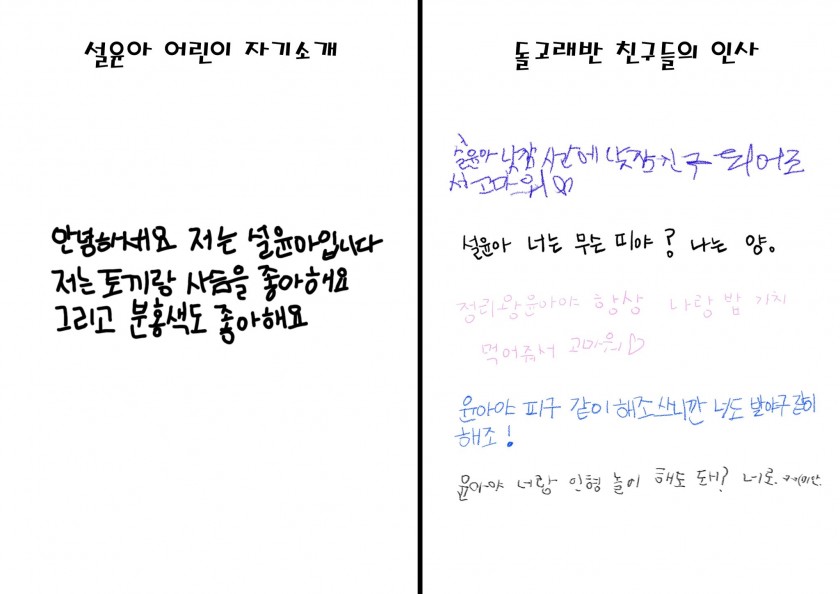 설윤아 어린이 자기소개
안녕하세요 저는 설윤아입니다
저는 토끼랑 사슴을 좋아해요
그리고 분홍색도 좋아해요
돌고래반 친구들의 인사
설윤아 낮잠 시간에 낮잠친구 되어조
서 고마워♡
설윤아 너는 무슨 띠야? 나는 양。
정리왕윤아야 항상 나랑 밥 가치
먹어줘서 고마워♡
윤아야 피구 같이 해조쓰니깐 너도 발야구 같이
해조!
윤아야 너랑 인형 놀이 해도 돼?